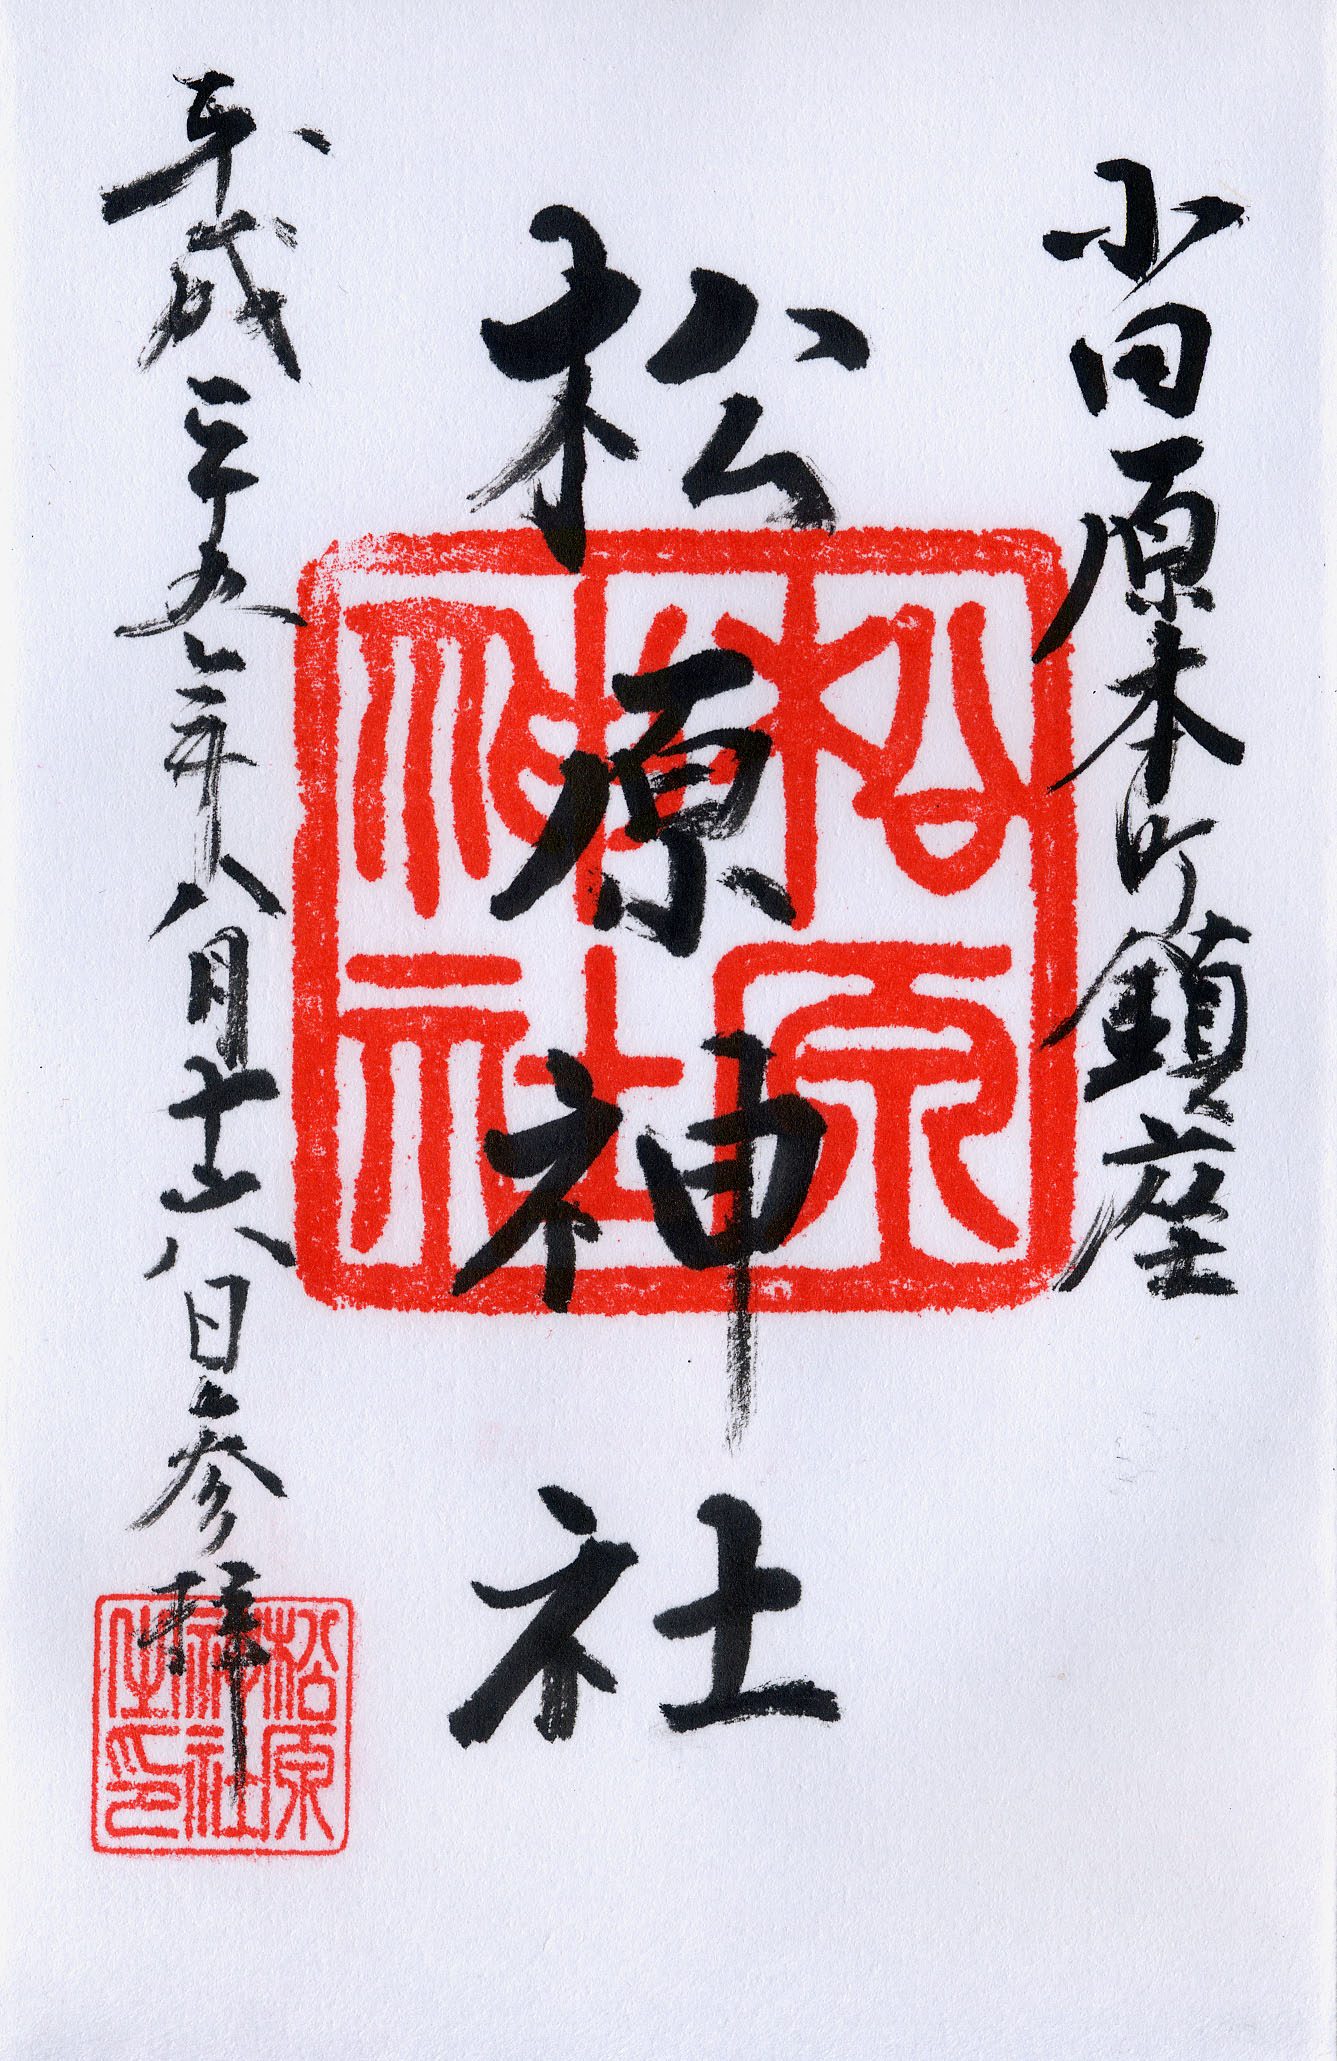 小田原本町鎮座
松原神社
平成二十九年八月十六日参拝
松原
神社
松原
神社
印